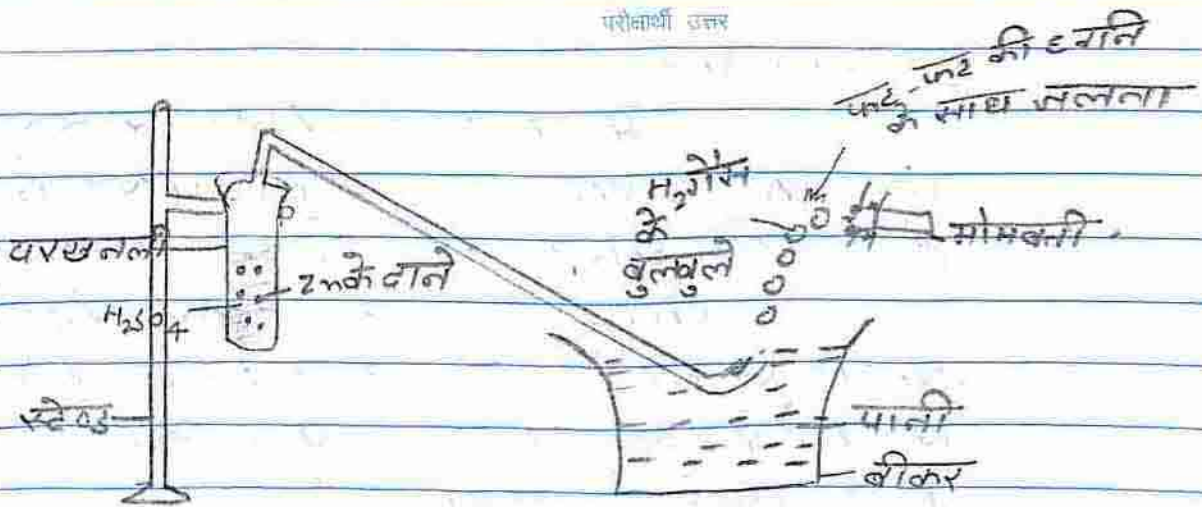 परीक्षार्थी उत्तर
फट-फट की ध्वनि
के साथ जलता
H₂ गैस
के
बुलबुले
मोमबत्ती
परखनली
Znके दाने
H₂SO₄
स्टेण्ड
पानी
बीकर